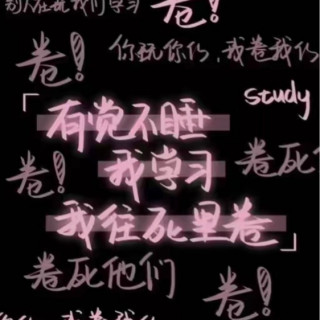 别人在玩我们学习
卷!
卷!
你玩你的,我卷我的
study
「有觉不睡
我学习
我往死里卷」
卷!
卷死他
卷死他们
卷!